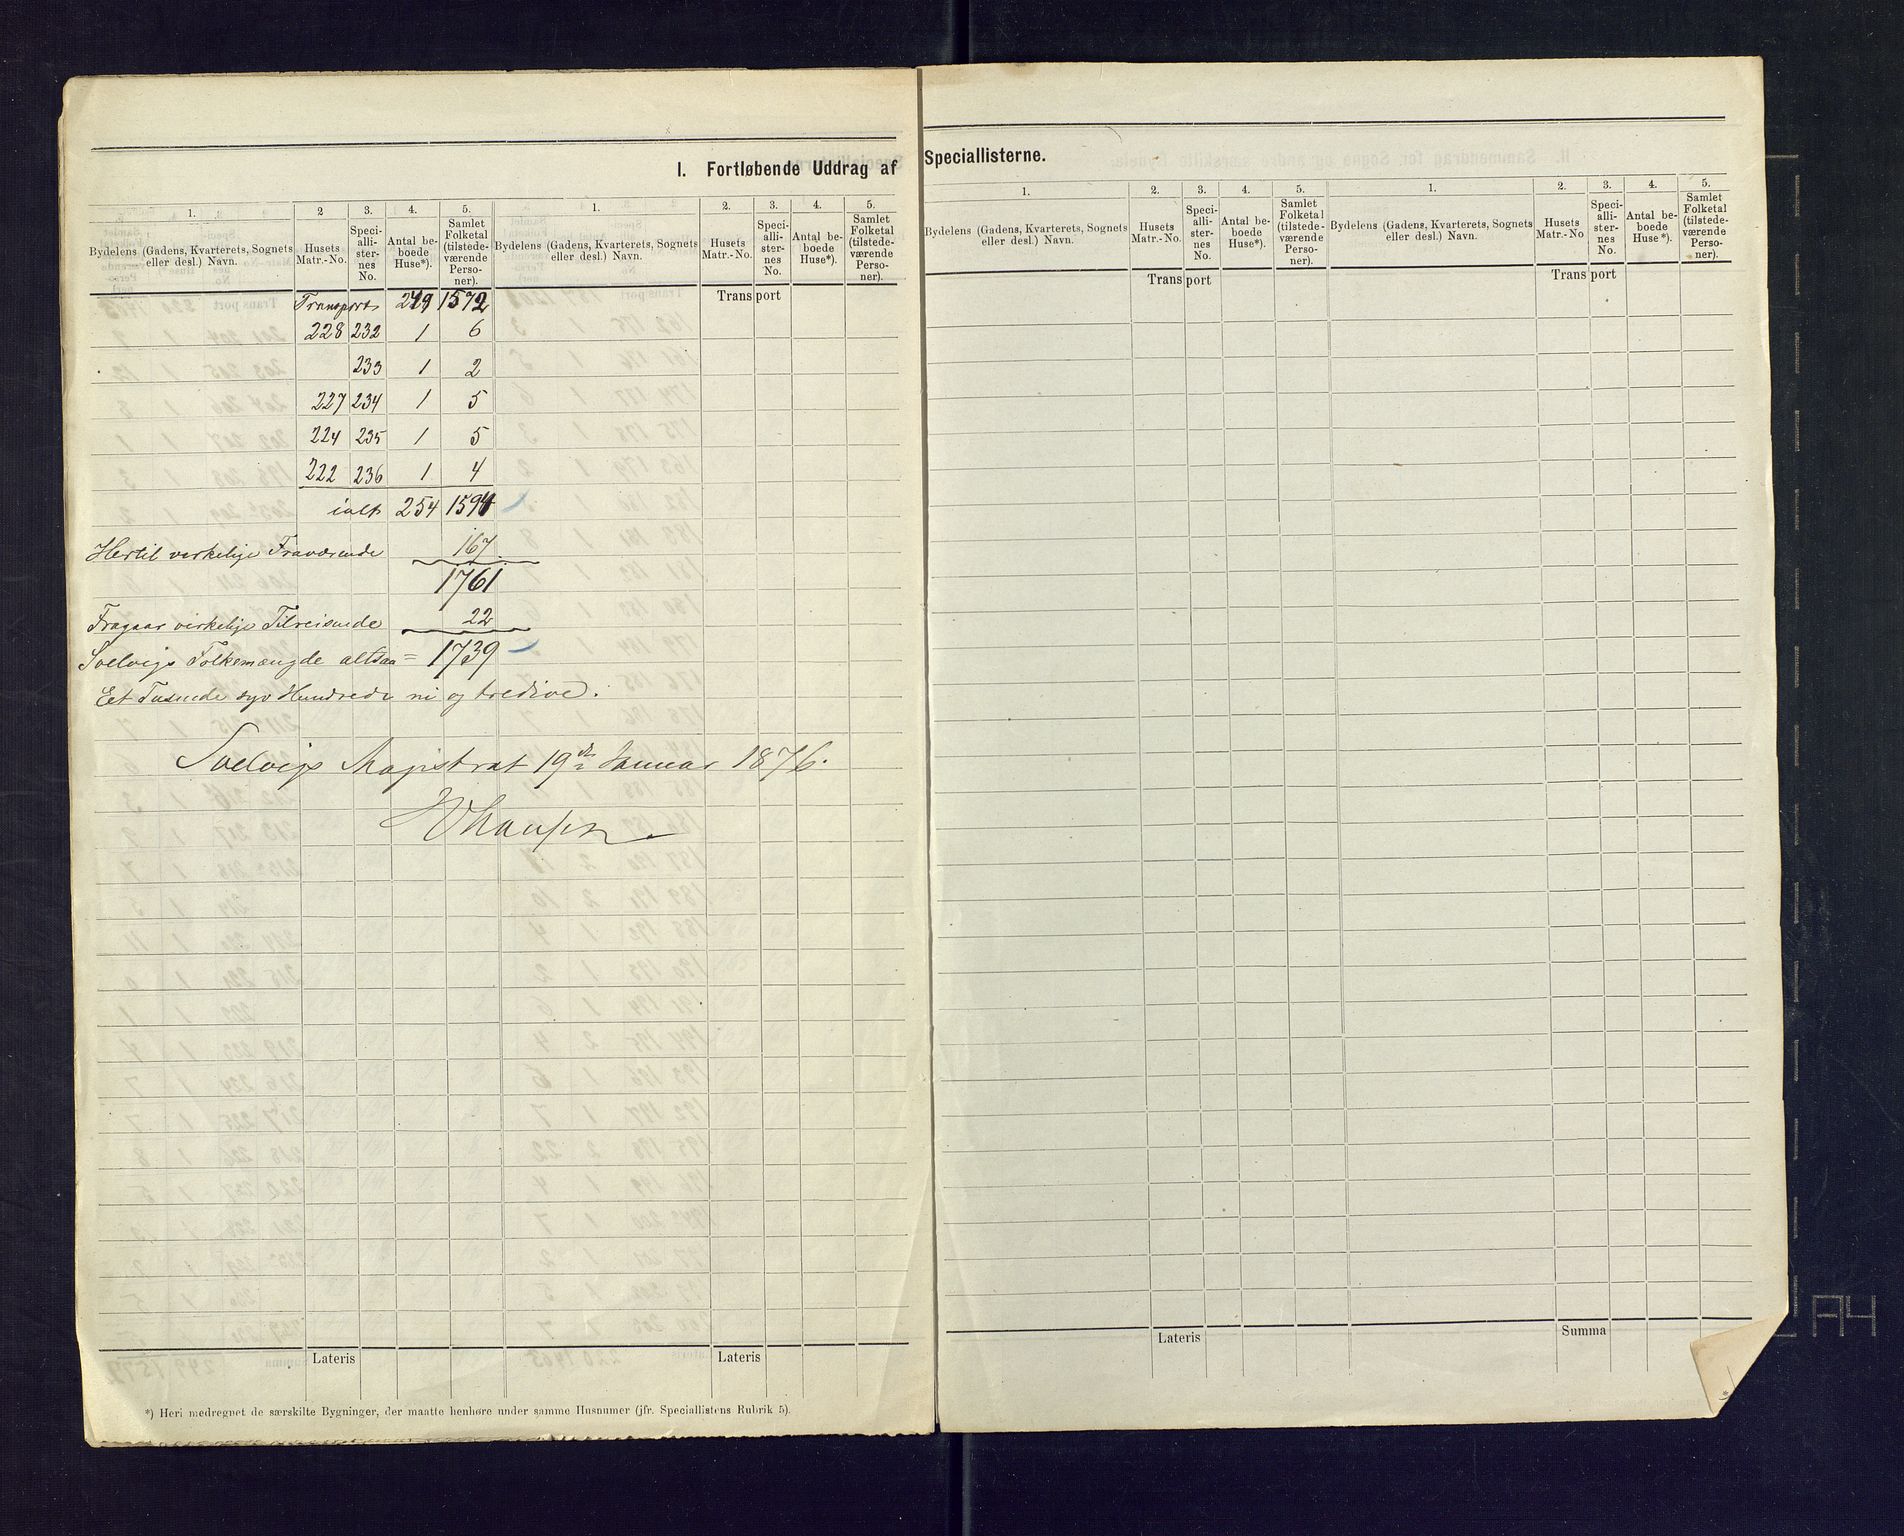 I. Fortløbende Uddrag af Speciallisterne.
1. 2 3. 4. 5. 1. 2. 3. 4. 5.
Bydelens (Gadens, Kvarterets, Sognets eller desl.) Navn. Husets Matr.-No. Speciallisternes No. Antal beboede Huse*). Samlet Folketal (tilstedeværende Personer).
Bydelens (Gadens, Kvarterets, Sognets eller desl.) Navn. Husets Matr.-No. Speciallisternes No. Antal beboede Huse*). Samlet Folketal (tilstedeværende Personer).
Transport 249 1572 Transport
228 232 1 6
233 1 2
227 234 1 5
224 235 1 5
222 236 1 4
ialt 254 1594
Hertil virkelige Fraværende 167
1761
Fragaar virkelige Tilreisende 22
Svelvigs Folkemængde altsaa = 1739
Eet Tusinde syv Hundrede ni og tredive.
Svelvigs Magistrat 19de Januar 1876.
Lateris Lateris
*) Heri medregnet de særskilte Bygninger, der maatte henhøre under samme Husnumer (jfr. Speciallistens Rubrik 5).
1. 2. 3. 4. 5. 1. 2. 3. 4. 5.
Bydelens (Gadens, Kvarterets, Sognets eller desl.) Navn. Husets Matr.-No. Speciallisternes No. Antal beboede Huse*). Samlet Folketal (tilstedeværende Personer).
Bydelens (Gadens, Kvarterets, Sognets eller desl.) Navn. Husets Matr.-No. Speciallisternes No. Antal beboede Huse*). Samlet Folketal (tilstedeværende Personer).
Transport Transport
Lateris Summa
A4